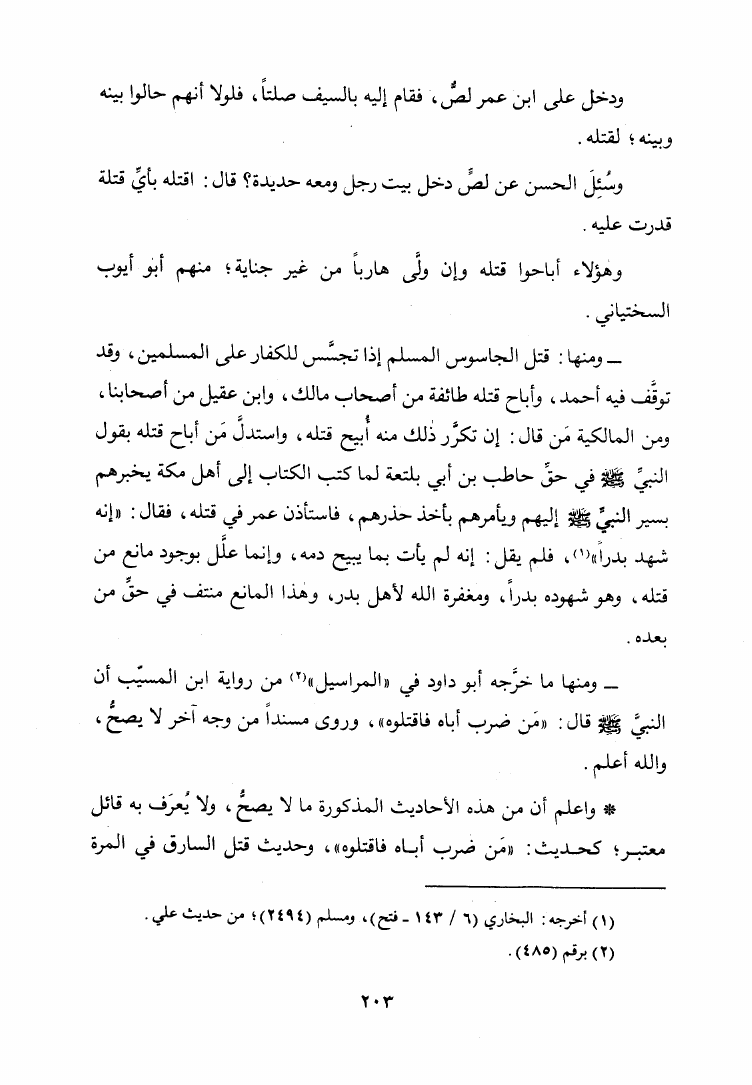 ودخل على ابن عمر لصٌّ، فقام إليه بالسيف صلتاً، فلولا أنهم حالوا بينه
وبينه؛ لقتله.
وسُئِلَ الحسن عن لصٍّ دخل بيت رجل ومعه حديدة؟ قال: اقتله بأيِّ قتلة
قدرت عليه.
وهؤلاء أباحوا قتله وإن ولَّى هارباً من غير جناية؛ منهم أبو أيوب
السختياني.
ــ ومنها: قتل الجاسوس المسلم إذا تجسَّس للكفار على المسلمين، وقد
توقَّف فيه أحمد، وأباح قتله طائفة من أصحاب مالك، وابن عقيل من أصحابنا،
ومن المالكية مَن قال: إن تكرَّر ذٰلك منه أُبيح قتله، واستدلَّ مَن أباح قتله بقول
النبيِّ ﷺ في حقِّ حاطب بن أبي بلتعة لما كتب الكتاب إلى أهل مكة يخبرهم
بسير النبيِّ ﷺ إليهم ويأمرهم بأخذ حذرهم، فاستأذن عمر في قتله، فقال: «إنه
شهد بدراً»(١)، فلم يقل: إنه لم يأت بما يبيح دمه، وإنما علَّل بوجود مانع من
قتله، وهو شهوده بدراً، ومغفرة الله لأهل بدر، وهٰذا المانع منتف في حقِّ من
بعده.
ــ ومنها ما خرَّجه أبو داود في «المراسيل»(٢) من رواية ابن المسيّب أن
النبيَّ ﷺ قال: «مَن ضرب أباه فاقتلوه»، وروى مسنداً من وجه آخر لا يصحُّ،
والله أعلم.
* واعلم أن من هذه الأحاديث المذكورة ما لا يصحُّ، ولا يُعرَف به قائل
معتبر؛ كحديث: «مَن ضرب أباه فاقتلوه»، وحديث قتل السارق في المرة
(١) أخرجه: البخاري (٦ / ١٤٣ - فتح)، ومسلم (٢٤٩٤)؛ من حديث علي.
(٢) برقم (٤٨٥).
٢٠٣